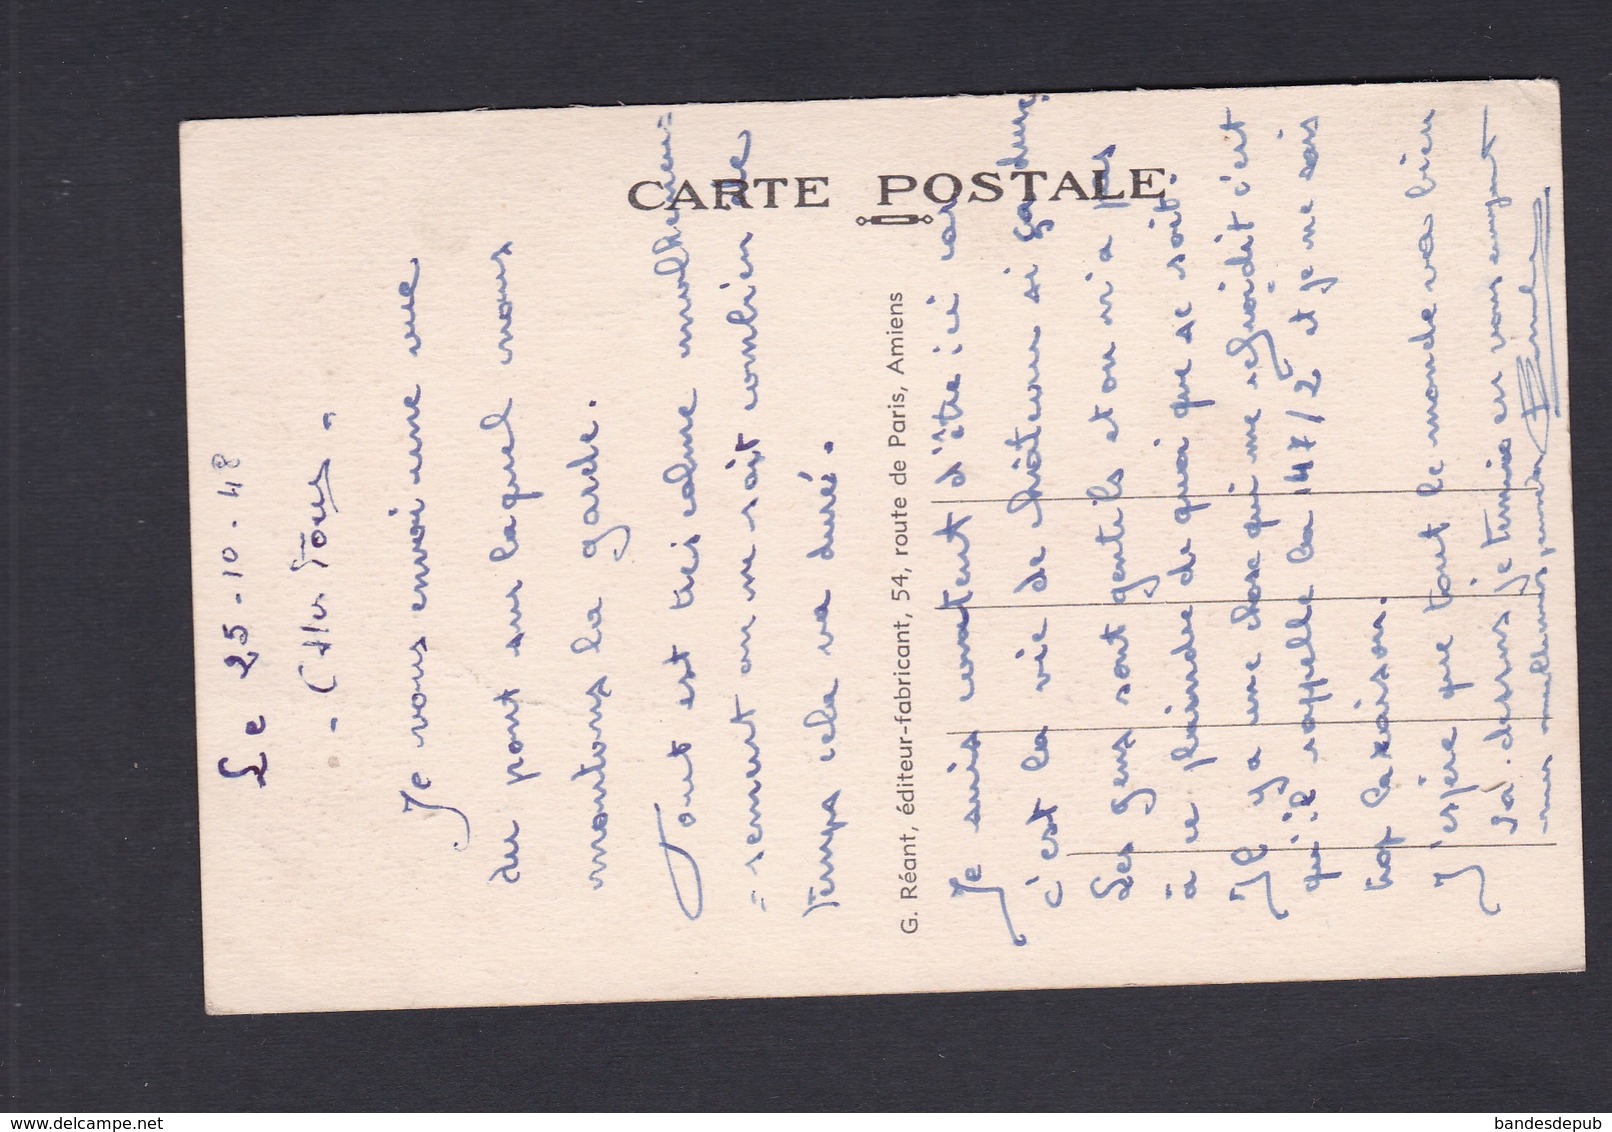 CARTE POSTALE
G. Réant, éditeur-fabricant, 54, route de Paris, Amiens
Le 25-10-48
- Chers Tous -
Je vous envoi une vue
du pont sur laquel nous
montons la garde.
Tout est très calme malheureu=
=sement on ne sait combien de
temps cela va duré.
Je suis content d'être ici car
c'est la vie de château si ça dure,
Les gens sont gentils et on n'a pas
à ce plaindre de quoi que se soit.
Il y a une chose qui me refroidit c'est
qu'il rappelle la 47/2 et je ne sais
trop la raison.
J'espère que tout le monde va bien
là. dessus je termine en vous envoyant
mes meilleures pensées
bandesdepub